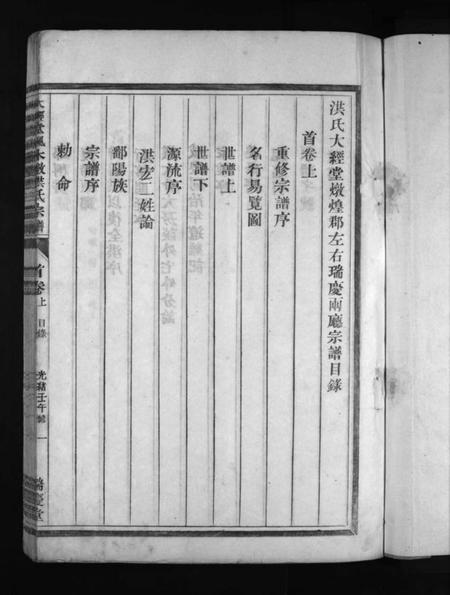 洪氏大經堂燉煌郡左右瑞慶兩廳宗譜目錄
首卷上
重修宗譜序
名行易覽圖
世譜上
世譜下
源流序
洪宏二姓論
鄱陽族
宗譜序
勅命
洪氏宗譜
首卷上 目錄 光緒壬午 一